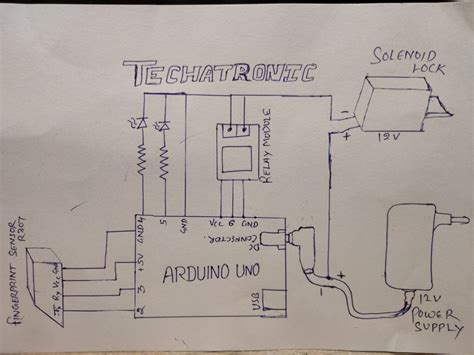 TECHATRONIC
SOLENOID
LOCK
-
+
12V
RELAY MODULE
4
5
GND
VCC 6 GND
DC
CONNECTOR.
GND
+5V
3
2
ARDUINO UNO
USB
FINGERPRINT SENSOR
R307
Tx Rx Vcc Gnd
12V
POWER
SUPPLY